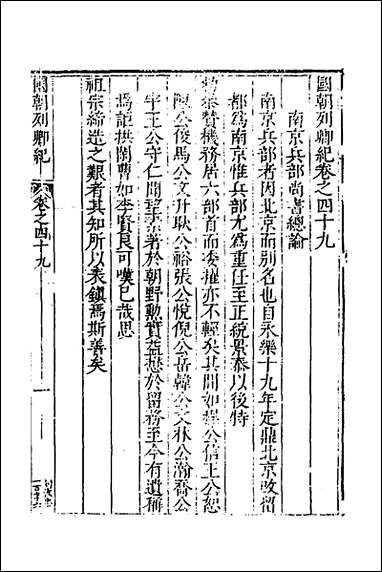 國朝列卿紀卷之四十九
南京兵部尚書總論
南京兵部者因北京而別名也自永樂十九年定鼎北京改留
都爲南京惟兵部尤爲重任至正統景泰以後特
參贊機務居六部首而委擢亦不輕矣其間如 公信王公恕
公俊馬公文升耿公裕張公悅倪公岳韓公文林公瀚喬公
宇王公守仁聞望 著於朝野勲實益懋於留務至今有遺稱
爲 拱開曹如李賢良可嘆已哉思
祖宗締造之艱者其知所以表鎮焉斯善矣
國朝列卿紀
卷之四十九
一